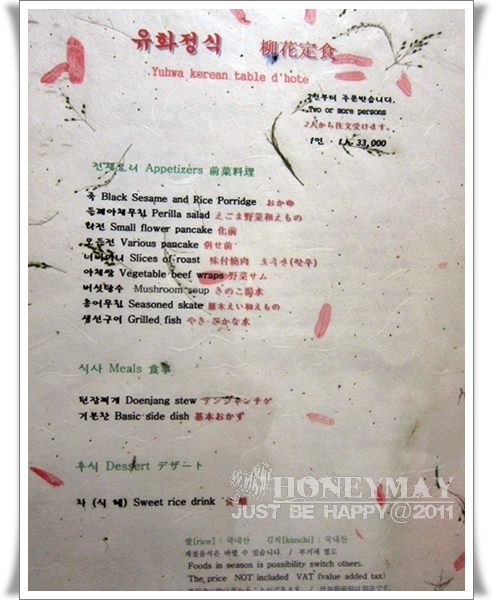 유화정식 柳花定食
Yuhwa korean table d'hote
2인부터 주문받습니다.
Two or more persons
2人から注文受けます。
1인 · 1人 33,000
전채요리 Appetizers 前菜料理
죽 Black Sesame and Rice Porridge おかゆ
들깨야채무침 Perilla salad えごま野菜和えもの
화전 Small flower pancake 花前
모든전 Various pancake 併せ前
너비아니 Slices of roast 味付焼肉
야채쌈 Vegetable beef wraps 野菜サム
버섯탕수 Mushroom soup きのこ湯水
홍어무침 Seasoned skate えい和えもの
생선구이 Grilled fish やきざかな水
식사 Meals 食事
된장찌개 Doenjang stew
기본찬 Basic side dish 基本おかず
후식 Dessert デザート
차 (식 혜) Sweet rice drink 食醯
HONEYMAY
JUST BE HAPPY@2011
쌀[rice] : 국내산 김치[kimchi] : 국내산
계절음식은 바뀔 수 있습니다. / 부가세 별도
Foods in season is possibility switch otners.
The price NOT included VAT (value added tax)